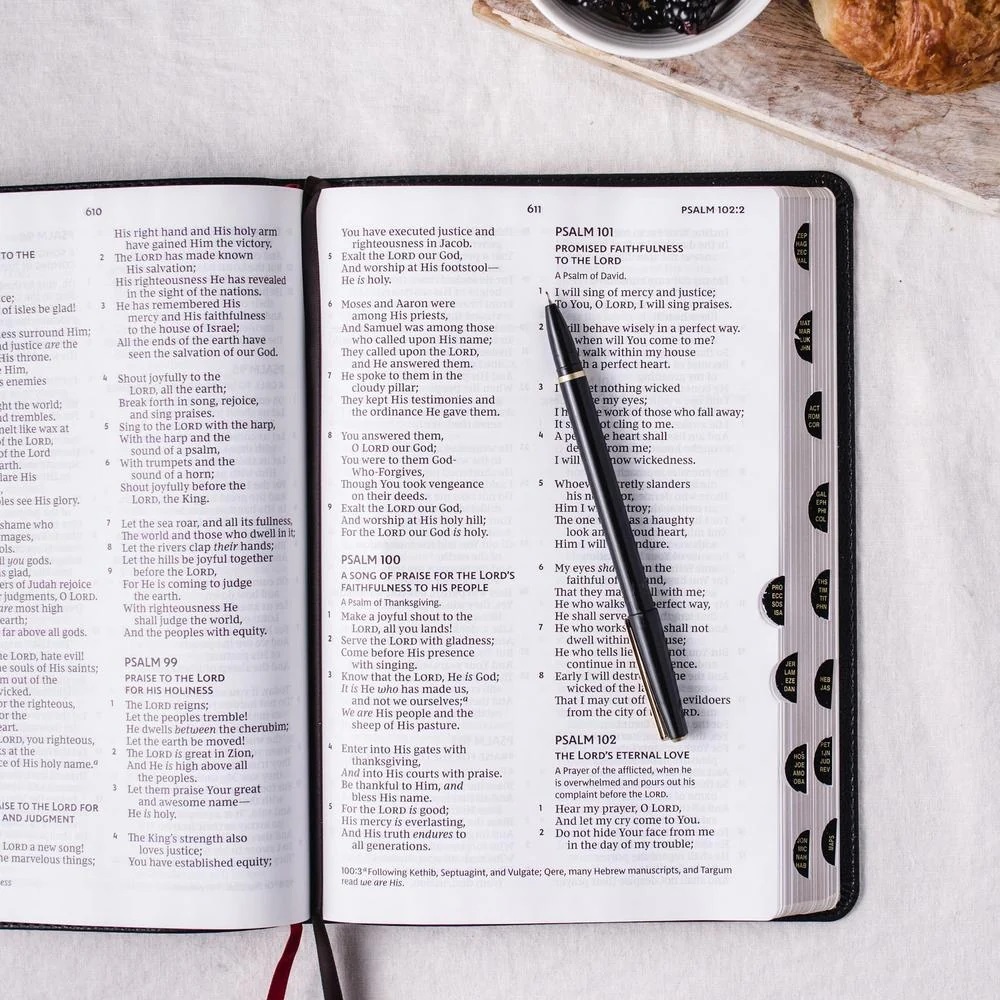 610
TO THE
of isles be glad!
surround Him;
justice are the
His throne.
Him,
enemies
the world;
and trembles.
like wax at
of the LORD,
earth.
His
see His glory.
shame who
gods.
glad,
of Judah rejoice
judgments, O LORD.
are most high
earth;
far above all gods.
LORD, hate evil!
souls of His saints;
out of the
wicked.
for the righteous,
for the
heart.
LORD, you righteous,
at the
of His holy name.a
TO THE LORD FOR
AND JUDGMENT
LORD a new song!
marvelous things;
His right hand and His holy arm
have gained Him the victory.
2 The LORD has made known
His salvation;
His righteousness He has revealed
in the sight of the nations.
3 He has remembered His
mercy and His faithfulness
to the house of Israel;
All the ends of the earth have
seen the salvation of our God.
4 Shout joyfully to the
LORD, all the earth;
Break forth in song, rejoice,
and sing praises.
5 Sing to the LORD with the harp,
With the harp and the
sound of a psalm,
6 With trumpets and the
sound of a horn;
Shout joyfully before the
LORD, the King.
7 Let the sea roar, and all its fullness,
The world and those who dwell in it;
8 Let the rivers clap their hands;
Let the hills be joyful together
9 before the LORD,
For He is coming to judge
the earth.
With righteousness He
shall judge the world,
And the peoples with equity.
PSALM 99
PRAISE TO THE LORD
FOR HIS HOLINESS
1 The LORD reigns;
Let the peoples tremble!
He dwells between the cherubim;
Let the earth be moved!
2 The LORD is great in Zion,
And He is high above all
the peoples.
3 Let them praise Your great
and awesome name—
He is holy.
4 The King's strength also
loves justice;
You have established equity;
611
PSALM 102:2
You have executed justice and
righteousness in Jacob.
5 Exalt the LORD our God,
And worship at His footstool—
He is holy.
6 Moses and Aaron were
among His priests,
And Samuel was among those
who called upon His name;
They called upon the LORD,
and He answered them.
7 He spoke to them in the
cloudy pillar;
They kept His testimonies and
the ordinance He gave them.
8 You answered them,
O LORD our God;
You were to them God-
Who-Forgives,
Though You took vengeance
on their deeds.
9 Exalt the LORD our God,
And worship at His holy hill;
For the LORD our God is holy.
PSALM 100
A SONG OF PRAISE FOR THE LORD'S
FAITHFULNESS TO HIS PEOPLE
A Psalm of Thanksgiving.
1 Make a joyful shout to the
LORD, all you lands!
2 Serve the LORD with gladness;
Come before His presence
with singing.
3 Know that the LORD, He is God;
It is He who has made us,
and not we ourselves;a
We are His people and the
sheep of His pasture.
4 Enter into His gates with
thanksgiving,
And into His courts with praise.
Be thankful to Him, and
bless His name.
5 For the LORD is good;
His mercy is everlasting,
And His truth endures to
all generations.
PSALM 101
PROMISED FAITHFULNESS
TO THE LORD
A Psalm of David.
1 I will sing of mercy and justice;
To You, O LORD, I will sing praises.
2 will behave wisely in a perfect way.
when will You come to me?
walk within my house
a perfect heart.
3 I nothing wicked
my eyes;
I work of those who fall away;
It cling to me.
4 A heart shall
from me;
I will know wickedness.
5 Whoever secretly slanders
his
Him I
The one has a haughty
look proud heart,
Him I endure.
6 My eyes
faithful of
That they with me;
He who walks perfect way,
He shall serve
7 He who works shall not
dwell within
He who tells not
continue in
8 Early I will
wicked of the
That I may cut off evildoers
from the city of
PSALM 102
THE LORD'S ETERNAL LOVE
A Prayer of the afflicted, when he
is overwhelmed and pours out his
complaint before the LORD.
1 Hear my prayer, O LORD,
And let my cry come to You.
2 Do not hide Your face from me
in the day of my trouble;
100:3 a Following Kethib, Septuagint, and Vulgate; Qere, many Hebrew manuscripts, and Targum
read we are His.
ZEP
HAG
ZEC
MAL
MAT
MAR
LUK
JHN
ACT
ROM
COR
GAL
EPH
PHI
COL
PRO
ECC
SOS
ISA
THS
TIM
TIT
PHN
JER
LAM
EZE
DAN
HEB
JAS
HOS
JOE
AMO
OBA
PET
JUD
REV
JON
MIC
NAH
HAB
MAPS